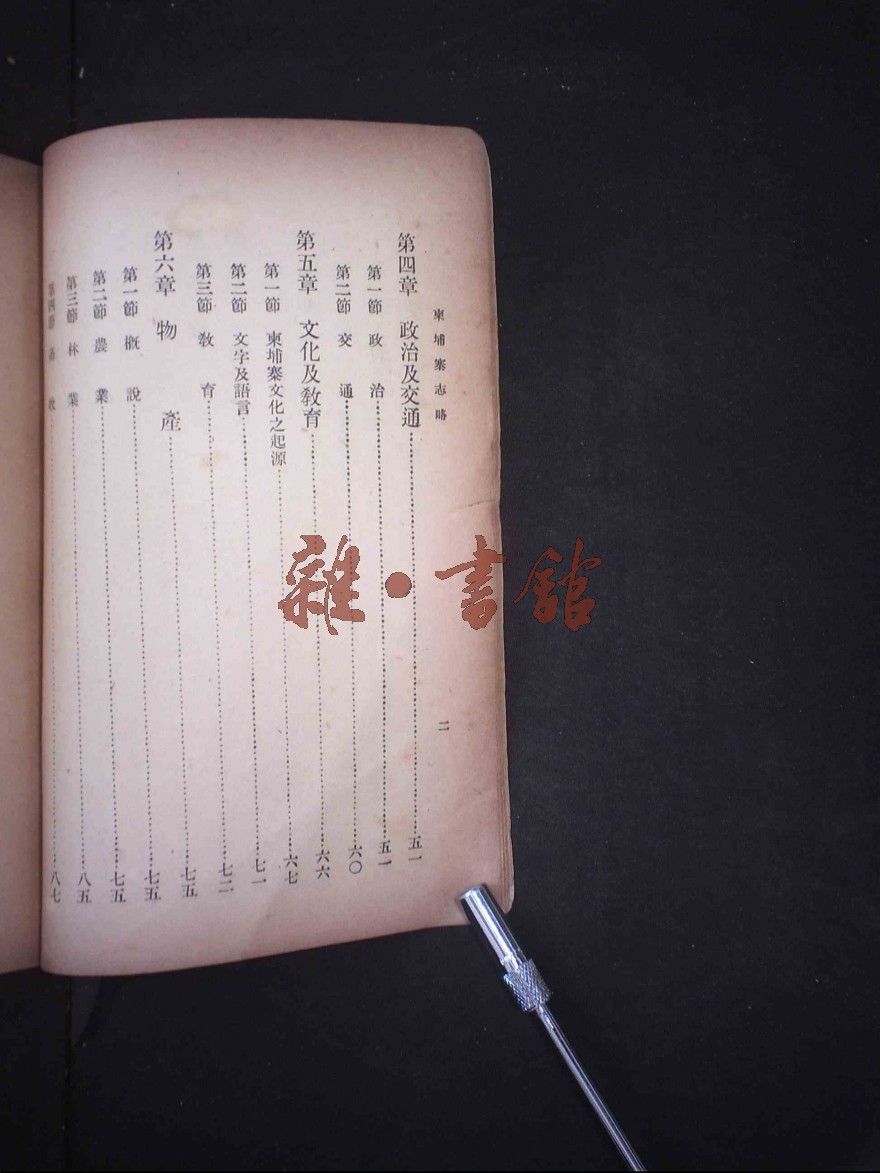 柬埔寨志略
二
第四章 政治及交通 五一
第一節 政治 五一
第二節 交通 六〇
第五章 文化及教育 六六
第一節 柬埔寨文化之起源 六七
第二節 文字及語言 七一
第三節 教育 七二
第六章 物產 七五
第一節 概說 七五
第二節 農業 七五
第三節 林業 八五
第四節 八七
雜·書館